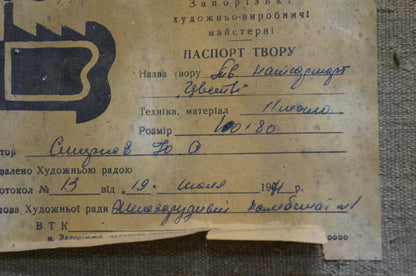 Запорізькі
художньо-виробничі
майстерні
ПАСПОРТ ТВОРУ
Назва твору Пів. натюрморт
"Цвети"
Техніка, матеріал п масло
Розмір 100x80
тор Смирнов Ю О
валено Художньою радою
ротокол № 13 від 19. июля 19 1 р.
лова Художньої ради комбинат №1
ВТК
м. Запоріжжя